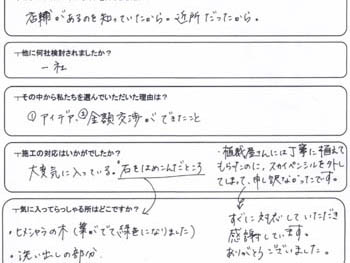 店舗があるのを知っていたから。近所だったから。
他に何社検討されましたか？
一社
その中から私たちを選んでいただいた理由は？
①アイデア、②金額交渉ができたこと
施工の対応はいかがでしたか？
大変気に入っている。石をはめこんだところ
・植栽屋さんには丁寧に植えて
もらったのに、スカイペンシルを外し
てしまって、申し訳なかったです。
すぐに対応していただき
感謝しています。
ありがとうございました。
気に入ってらっしゃる所はどこですか？
・ヒメシャラの木（葉がでて緑色になりました）
・洗い出しの部分